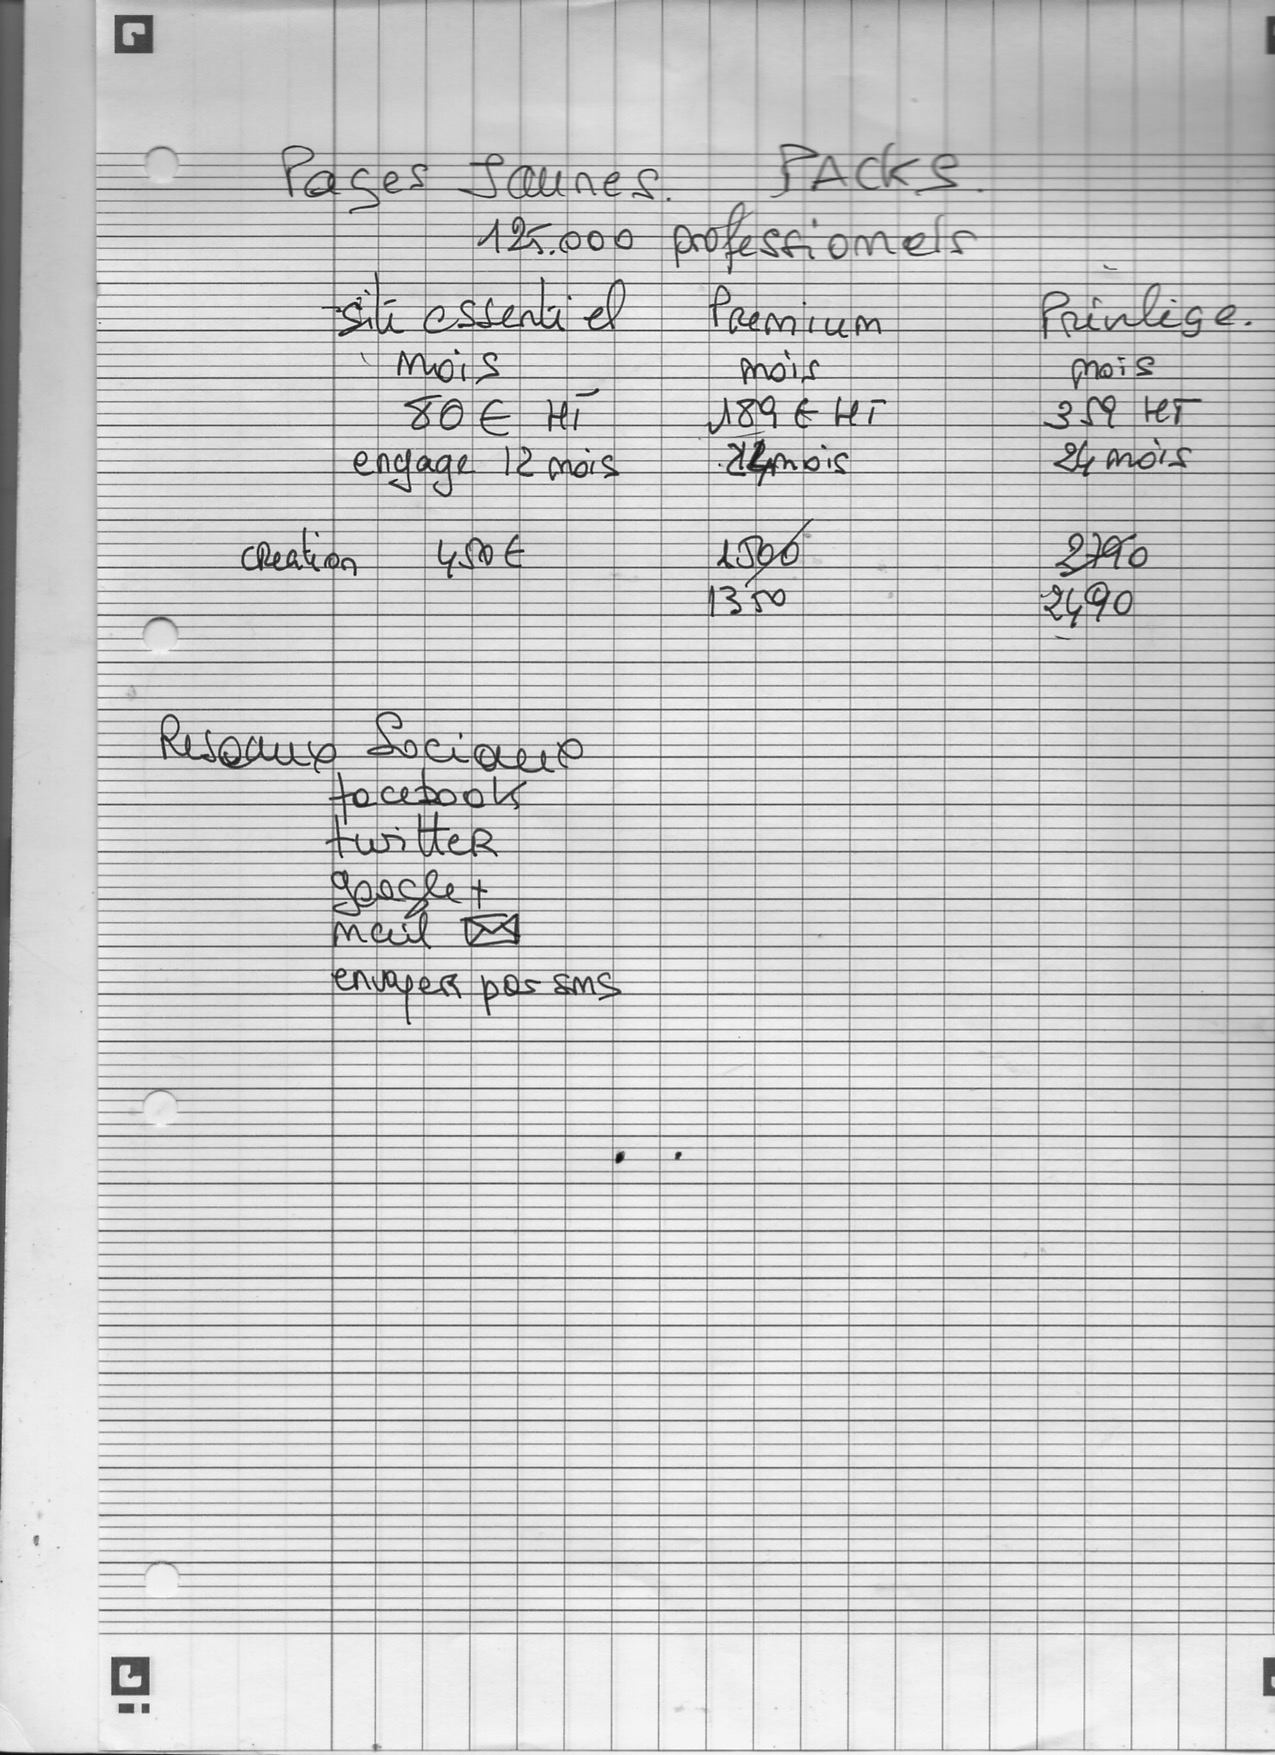 Pages Jaunes. PACKS.
125.000 professionnels
site essentiel Premium Privilège.
mois mois mois
80 € HT 189 € HT 359 HT
engage 12 mois 24 mois 24 mois
creation 450 € 1500 2790
1350 2490
Reseaux Sociaux
facebook
twitter
google +
mail
envoyer par sms